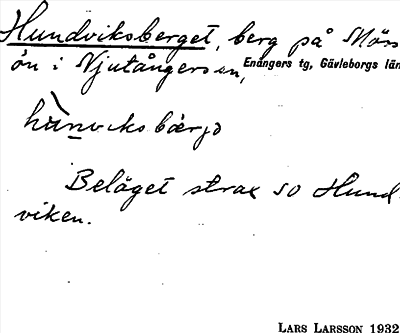 Hundviksberget, berg på Mås-
ön i Njutångers sn, Enångers tg, Gävleborgs län
Beläget strax SO Hund-
viken.
LARS LARSSON 1932